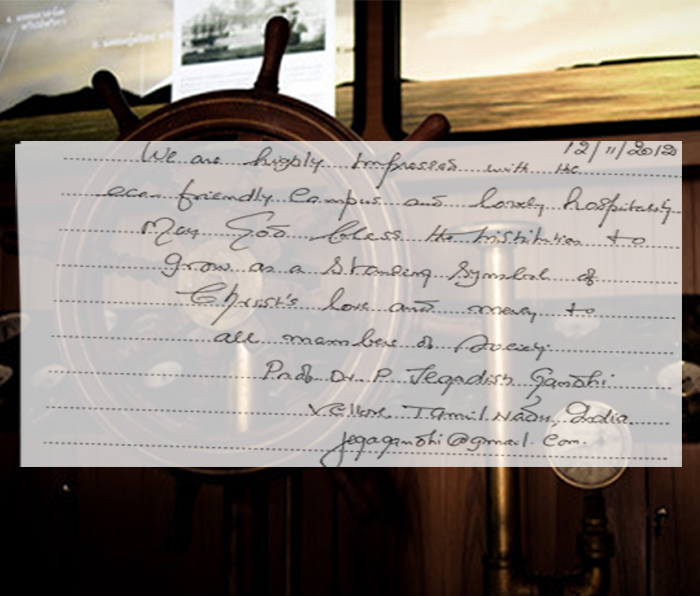 12/11/2012
We are highly impressed with the
eco friendly campus and lovely hospitality
May God bless the institution to
grow as a standing symbol of
Christ's love and mercy to
all members of Society.
Prof. Dr. P. Jegadish Gandhi
Vellore, Tamil Nadu, India.
jegagandhi@gmail.com.